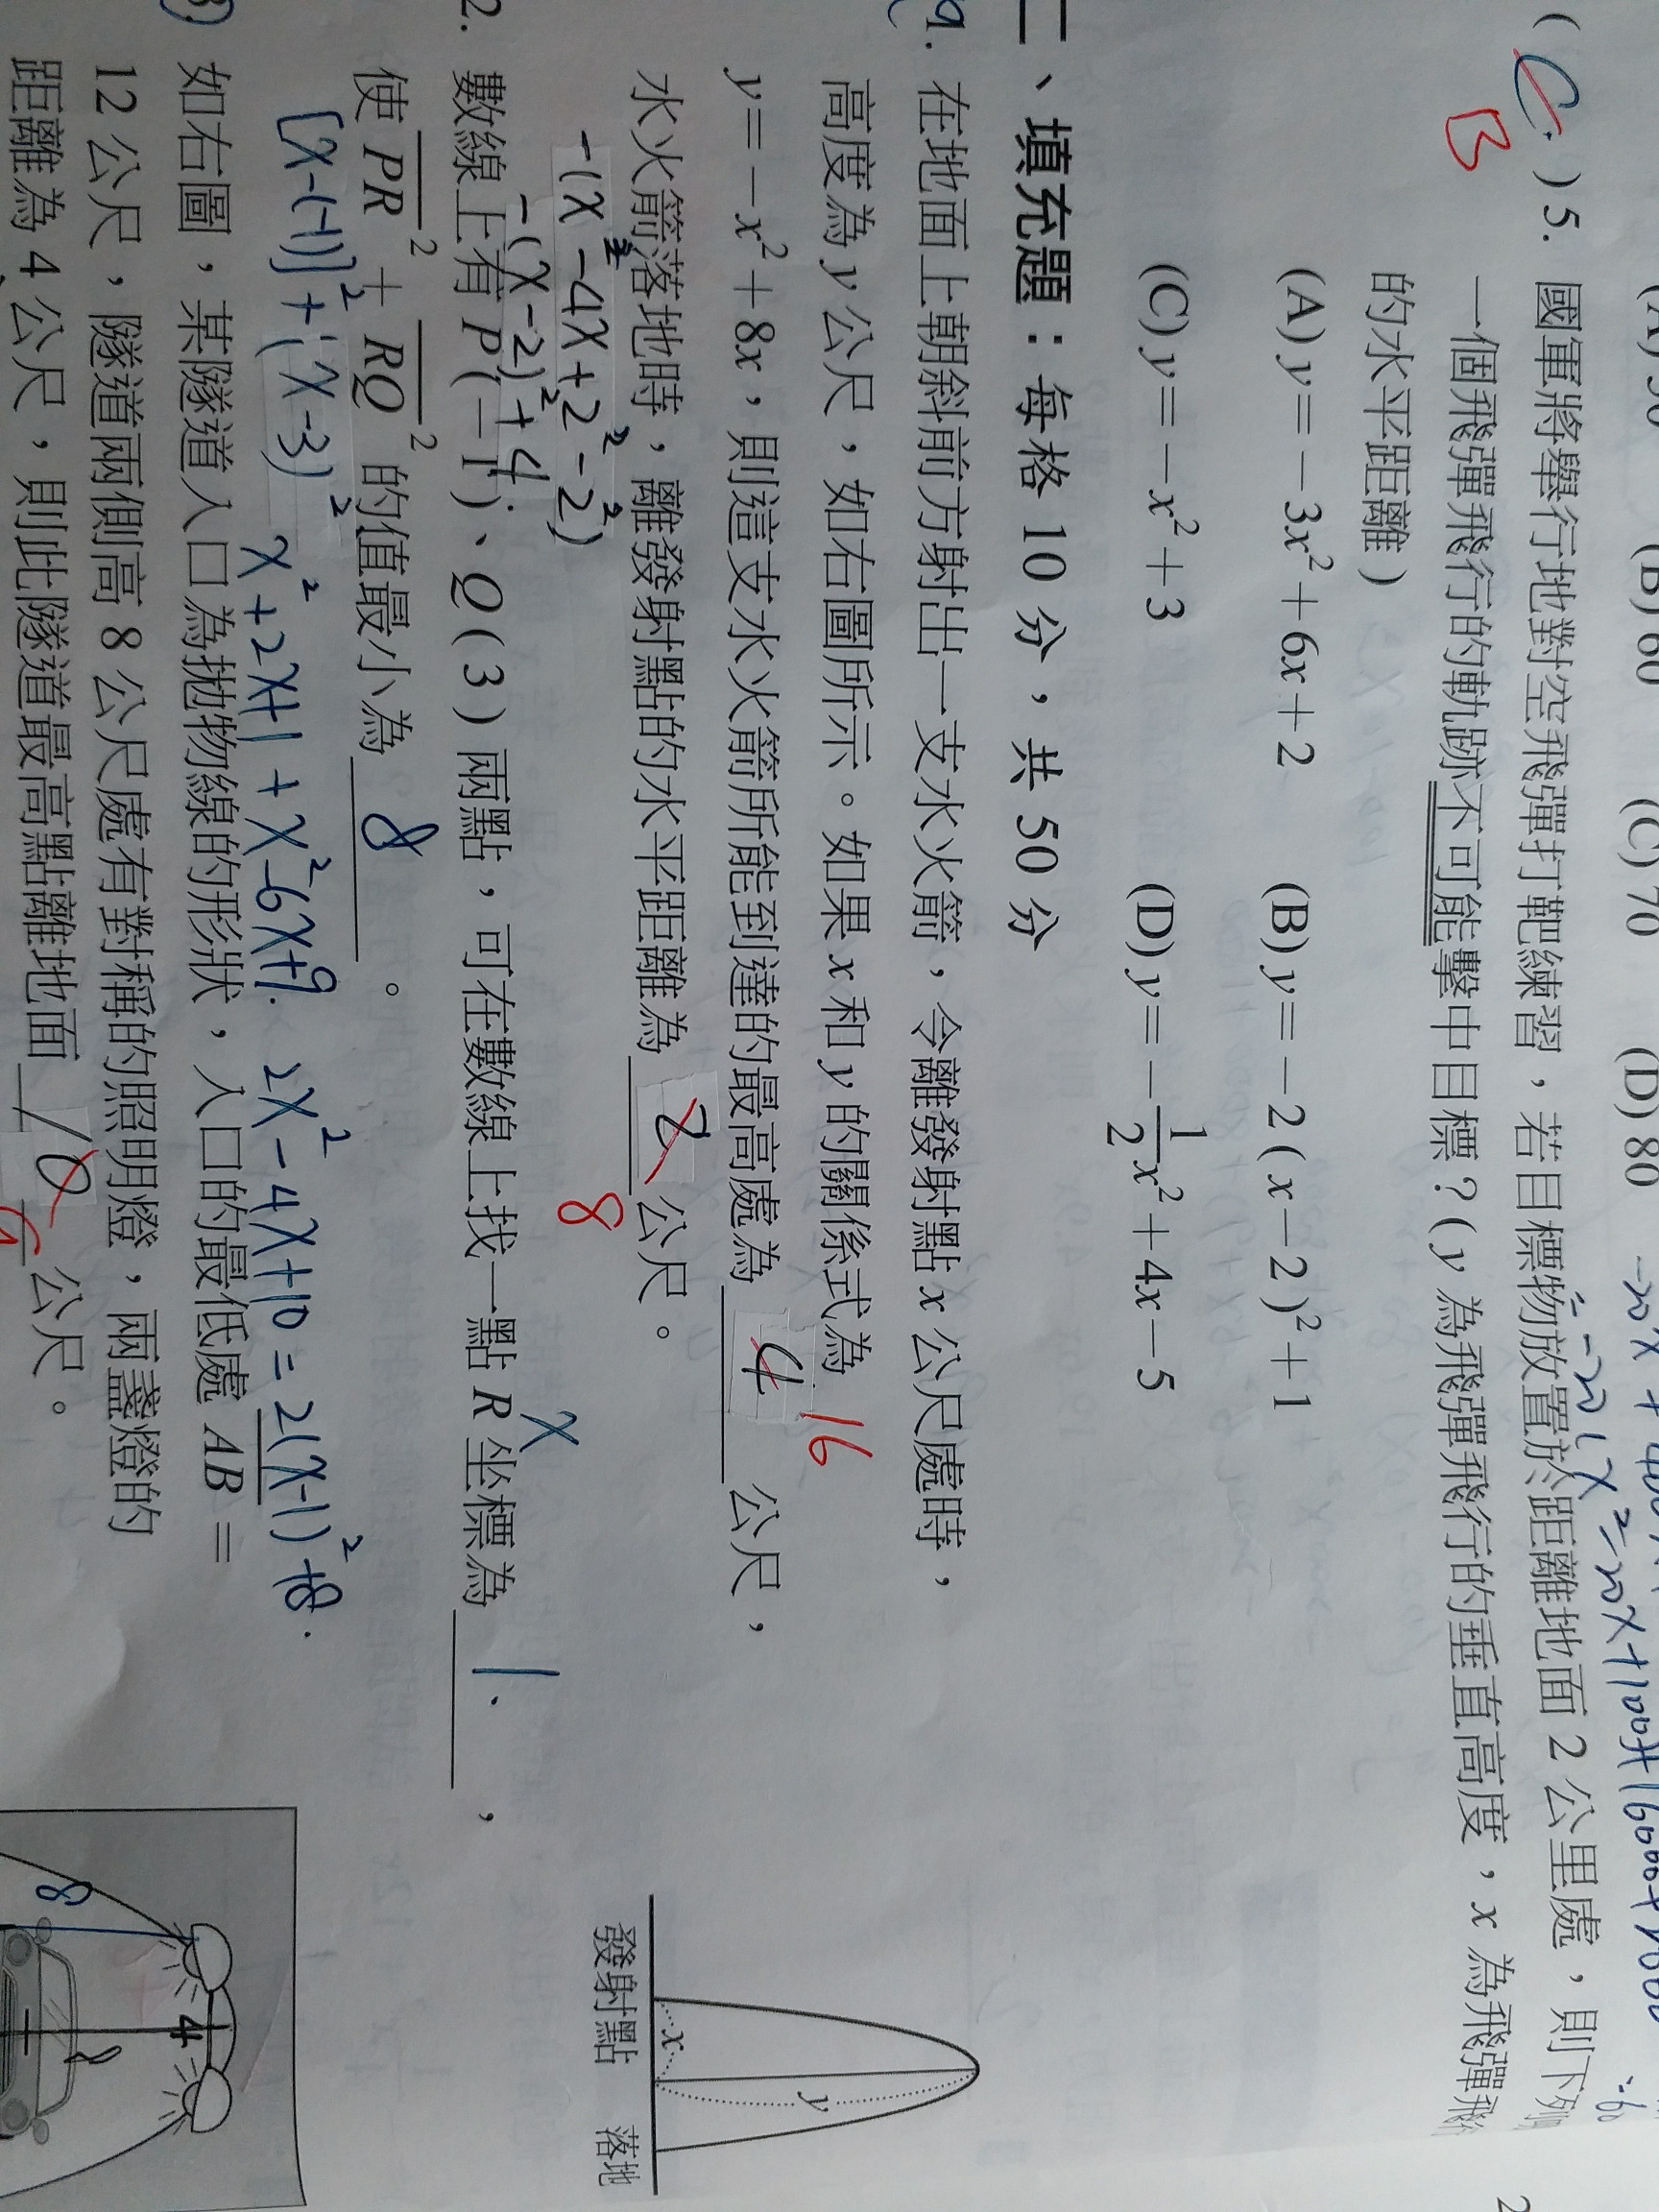 (B) 60 (C) 70 (D) 80
( C ) 5. 國軍將舉行地對空飛彈打靶練習，若目標物放置於距離地面 2 公里處，則下列
B
一個飛彈飛行的軌跡不可能擊中目標？( y 為飛彈飛行的垂直高度，x 為飛彈飛
的水平距離 )
(A) y = －3x² + 6x + 2 (B) y = －2 ( x－2 )² + 1
(C) y = －x² + 3 (D) y = －1/2 x² + 4x－5
二、填充題：每格 10 分，共 50 分
1. 在地面上朝斜前方射出一支水火箭，令離發射點 x 公尺處時，
高度為 y 公尺，如右圖所示。如果 x 和 y 的關係式為
y = －x² + 8x，則這支水火箭所能到達的最高處為 4 公尺，
16
水火箭落地時，離發射點的水平距離為 2 公尺。
8
-(x²-4x+2²-2²)
-(x-2)²+4
發射點 落地
x
y
2. 數線上有 P (－1)、Q ( 3 ) 兩點，可在數線上找一點 R 坐標為 1，
x
使 PR² + RQ² 的值最小為 8。
[x-(-1)]²+(x-3)²
x²+2x+1+x²-6x+9. 2x²-4x+10=2(x-1)²+8.
如右圖，某隧道入口為拋物線的形狀，入口的最低處 AB =
12 公尺，隧道兩側高 8 公尺處有對稱的照明燈，兩盞燈的
距離為 4 公尺，則此隧道最高點離地面 10 公尺。
8
4